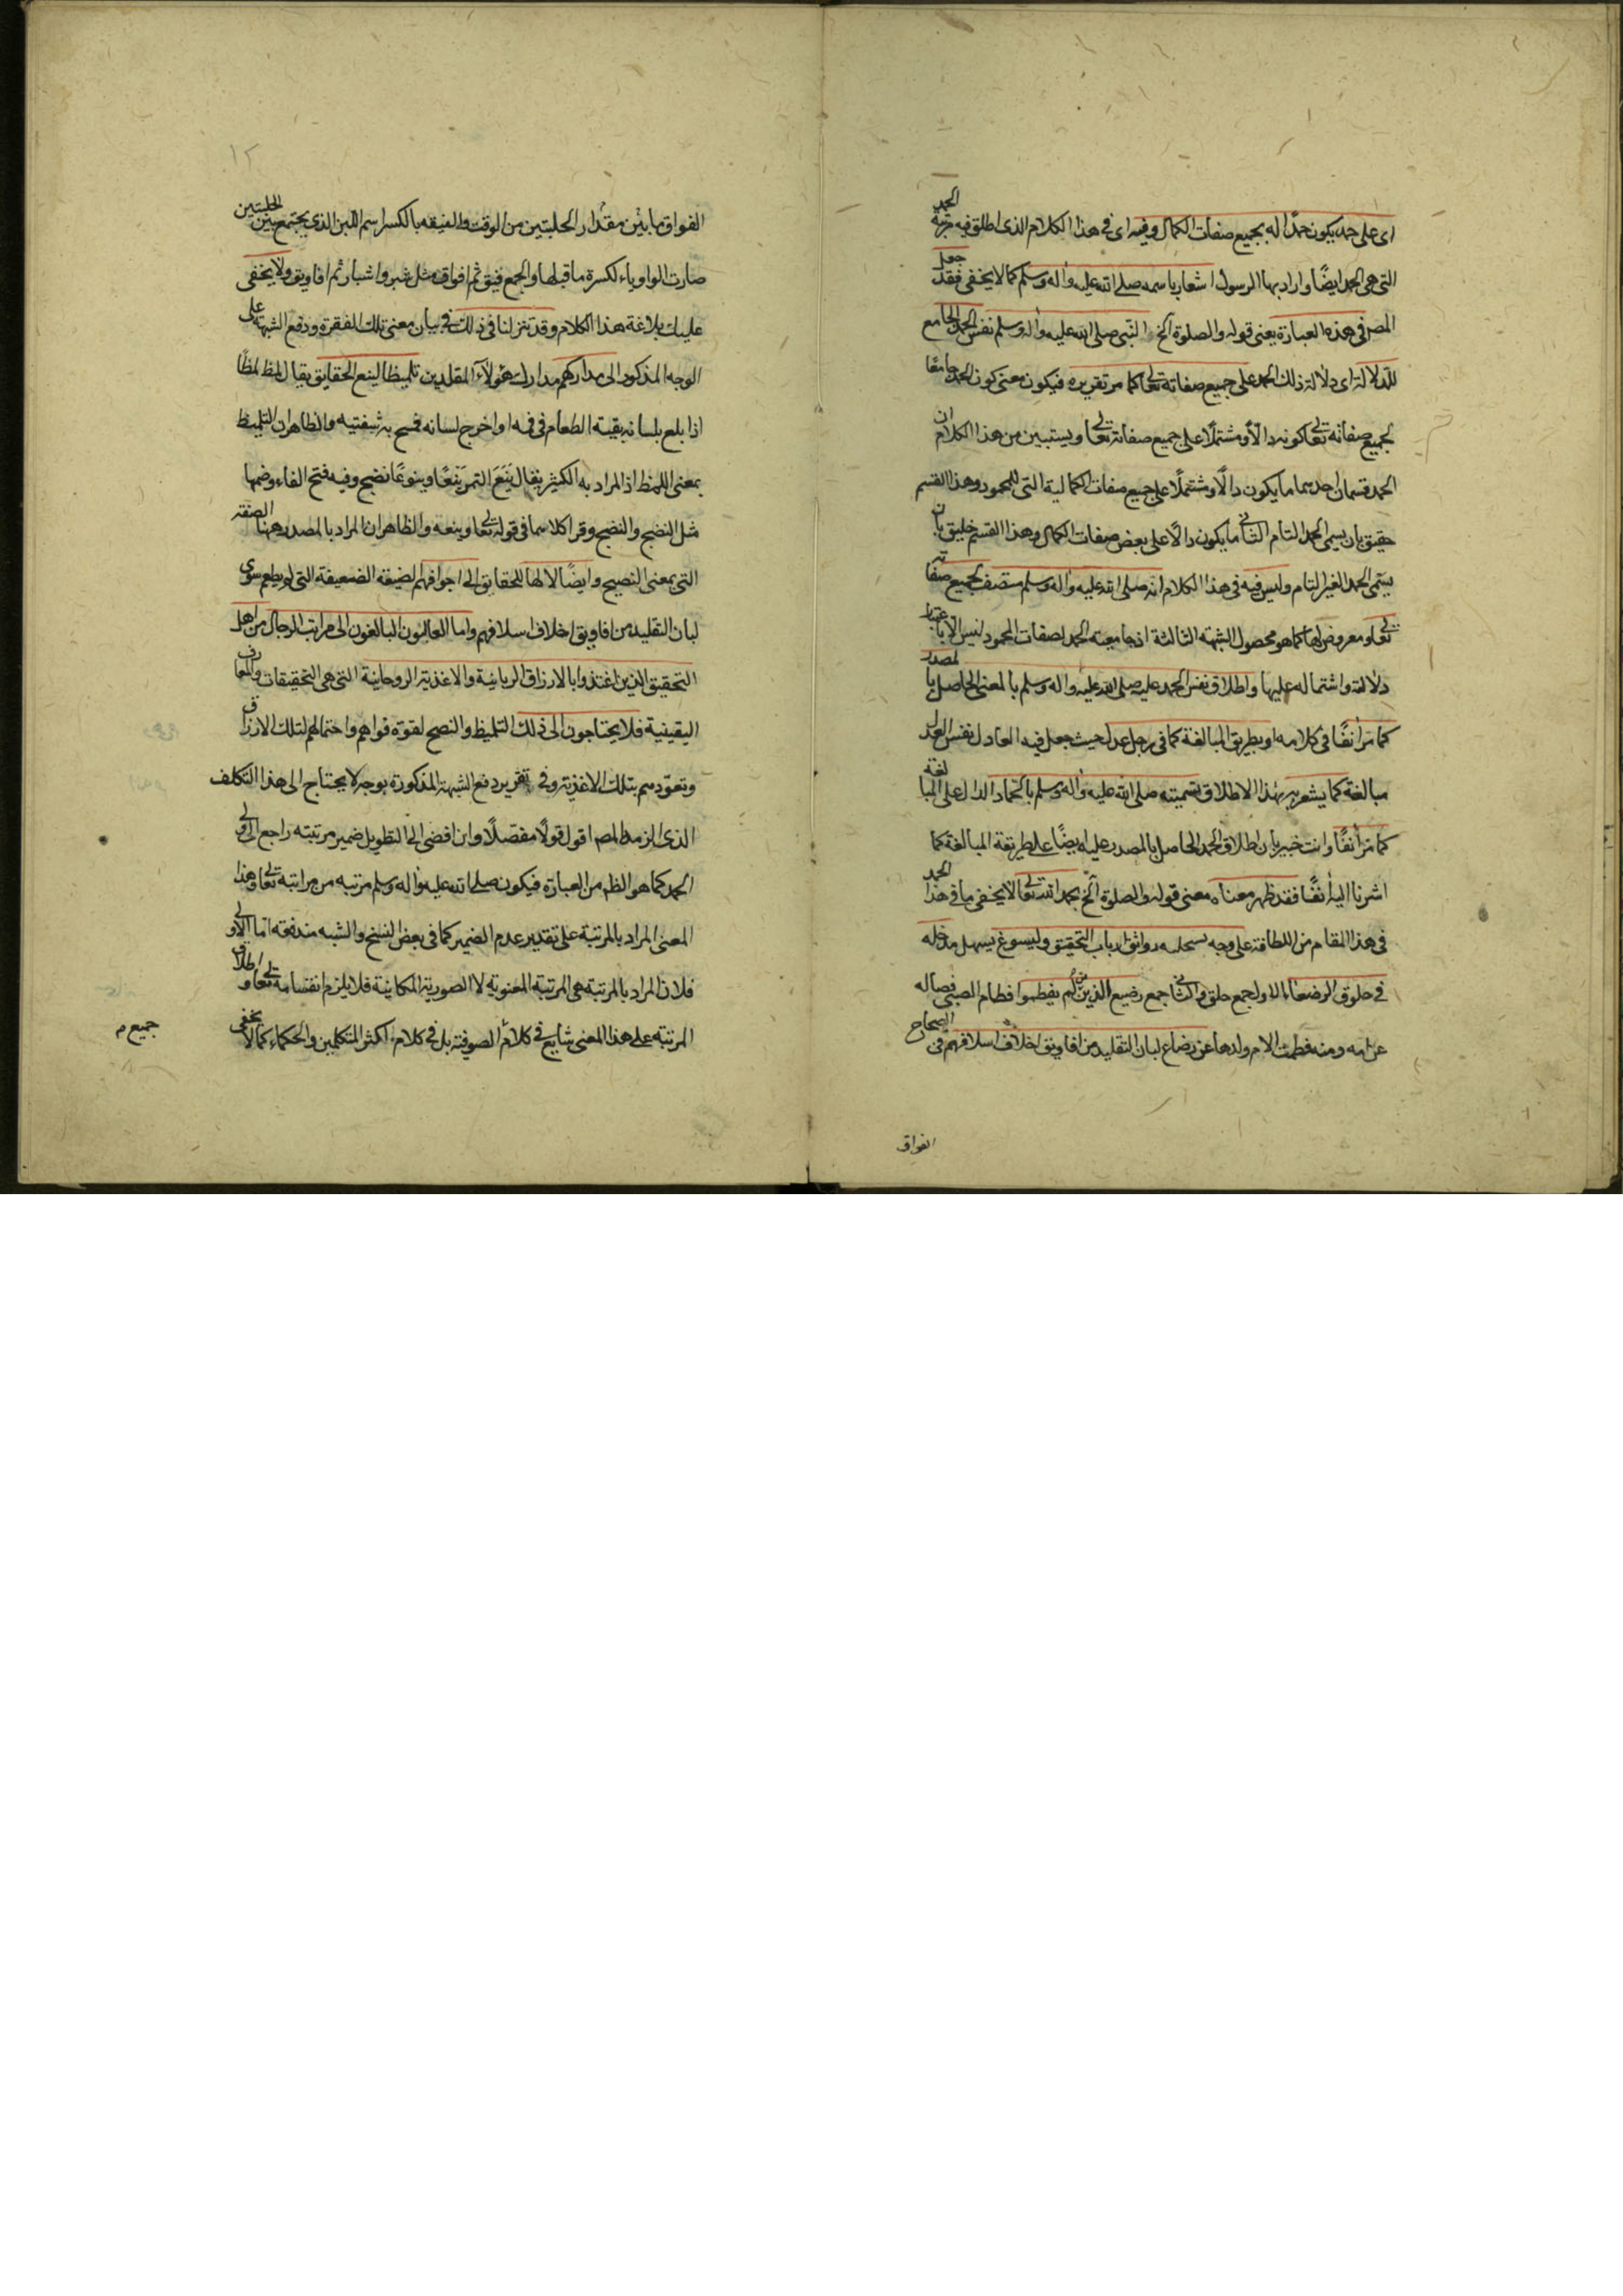 اى على حمد يكون حمدًا له بجميع صفات الكمال وفيه اى فى هذا الكلام الذى اطلق فيه مرتبة الحمد
التى هى الحمد ايضًا واراد بها الرسول اشعار باسمه صلى الله عليه واله وسلم كما لا يخفى فقد جعل
المص فى هذه العبارة يعنى قوله والصلوة الخ النبى صلى الله عليه واله وسلم نفس الحمد الجامع
للدلالة اى دلالة ذلك الحمد على جميع صفاته تعالى كما مر تقريره فيكون معنى كون الحمد جامعًا
لجميع صفاته تعالى كونه دالًا ومشتملًا على جميع صفاته تعالى ويستبين من هذا الكلام ان
الحمد قسمان احدهما ما يكون دالًا ومشتملًا على جميع صفات الكمالية التى للمحمود وهذا القسم
حقيق بان يسمى الحمد التام الثانى ما يكون دالًا على بعض صفات الكمال وهذا القسم خليق بان
يسمى الحمد الغير التام وليس فيه فى هذا الكلام انه صلى الله عليه واله وسلم متصف بجميع صفاته
تعالى ومعروض لها كما هو محصول الشبهة الثالثة اذ جامعية الحمد لصفات المحمود ليس الا باعتبار
دلالته واشتماله عليها واطلاق نفس الحمد عليه صلى الله عليه واله وسلم بالمعنى الحاصل بالمصدر
كما مر آنفًا فى كلامه او بطريق المبالغة كما فى رجل عدل حيث جعل فيه العادل نفس العدل
مبالغة كما يشعر بهذا الاطلاق تسميته صلى الله عليه واله وسلم بالحماد الدال على المبالغة
كما مر آنفًا وانت خبير بان اطلاق الحمد الحاصل بالمصدر عليه ايضًا على طريقة المبالغة كما
اشرنا اليه آنفًا فقد ظهر معناه معنى قوله والصلوة الخ بحمد الله تعالى لا يخفى ما فى هذا الحمد
فى هذا المقام من اللطافة على وجه يستحليه ذواق ارباب التحقيق وليسوغ يسهل مدخله
فى حلوق الرضعاء الاول جمع حلق والثانى جمع رضيع الذين لم يفطموا من فطام الصبى فصاله
عن امه ومنه فطمت الام ولدها عن رضاع لبان التقليد من افاويق اخلاف اسلافهم فى الصحاح
الفواق
١٢
الفواق ما بين مقدار الحلبتين من الوقت والفيقه بالكسر اسم اللبن الذى يجتمع بين الحلبتين
صارت الواو ياء لكسرة ما قبلها والجمع فيق ثم افواق مثل شبر واشبار ثم افاويق ولا يخفى
عليك بلاغة هذا الكلام وقد تنزلنا فى ذلك فى بيان معنى تلك الفقرة ودفع الشبهة على
الوجه المذكور الى مداركهم مدارك هؤلآء المقلدين تلميظا لينع الحقايق يقال لمظ لمظًا
اذا بلع بلسانه بقية الطعام فى فيه او اخرج لسانه فمسح به شفتيه والظاهر ان التلميظ
بمعنى اللمظ اذ المراد به الكثير يقال يَنَعَ التمر يَنْعًا وينوعًا نضج وفيه فتح الفاء وضمها
مثل النضج والنضج وقرا كلاهما فى قوله تعالى وينعه والظاهر ان المراد بالمصدر ههنا الصفة
التى بمعنى النضيج وايضًا لا لها للحقايق الى اجوافهم لضيقه الضعيفة التى لم يطعم سوى
لبان التقليد من افاويق اخلاف اسلافهم واما العالمون البالغون الى مراتب الرجال من اهل
التحقيق الذين اغتذوا بالارزاق الربانية والاغذية الروحانية التى هى التحقيقات والمعارف
اليقينية فلا يحتاجون الى ذلك التلميظ والنضج لقوة قواهم واحتمالهم لتلك الارزاق
وتعودهم بتلك الاغذية وفى تقرير دفع الشبهة المذكورة بوجه لا يحتاج الى هذا التكلف
الذى الزمه المص اقول قولًا مفصلًا وان افضى الى التطويل ضمير مرتبته راجع الى
الحمد كما هو الظ من العبارة فيكون صلى الله عليه واله وسلم مرتبه من مراتبه تعالى وهذا
المعنى المراد بالمرتبة على تقدير عدم الضمير كما فى بعض النسخ والشبه مندفعة اما الاولى
فلان المراد بالمرتبة هى المرتبة المعنوية لا الصورية المكانية فلا يلزم انقسامه تعالى واطلاق
المرتبه على هذا المعنى شايع فى كلام الصوفية بل فى كلام اكثر المتكلمين والحكماء كما لا يخفى
جميع م